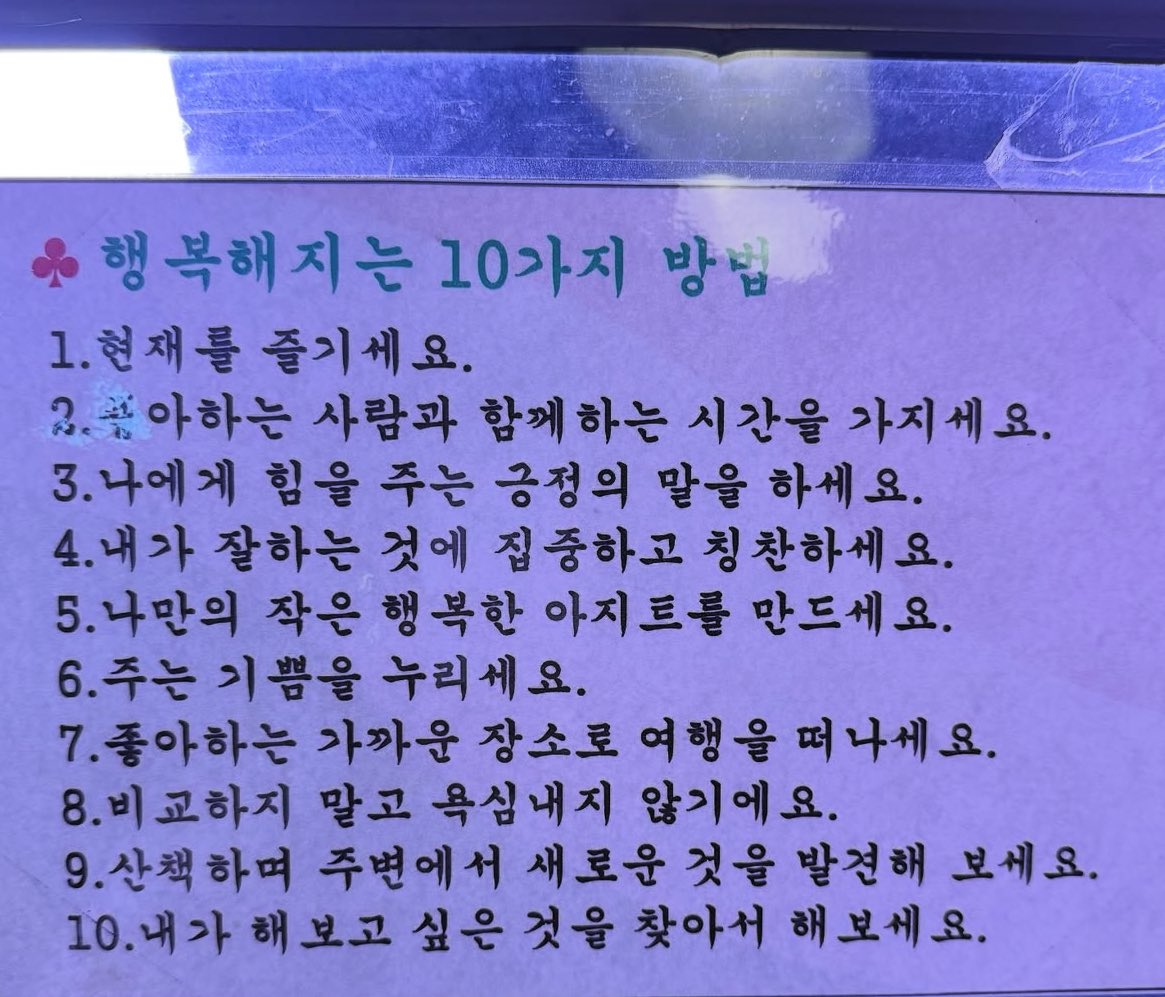 ♣ 행복해지는 10가지 방법
1.현재를 즐기세요.
2.좋아하는 사람과 함께하는 시간을 가지세요.
3.나에게 힘을 주는 긍정의 말을 하세요.
4.내가 잘하는 것에 집중하고 칭찬하세요.
5.나만의 작은 행복한 아지트를 만드세요.
6.주는 기쁨을 누리세요.
7.좋아하는 가까운 장소로 여행을 떠나세요.
8.비교하지 말고 욕심내지 않기에요.
9.산책하며 주변에서 새로운 것을 발견해 보세요.
10.내가 해보고 싶은 것을 찾아서 해보세요.